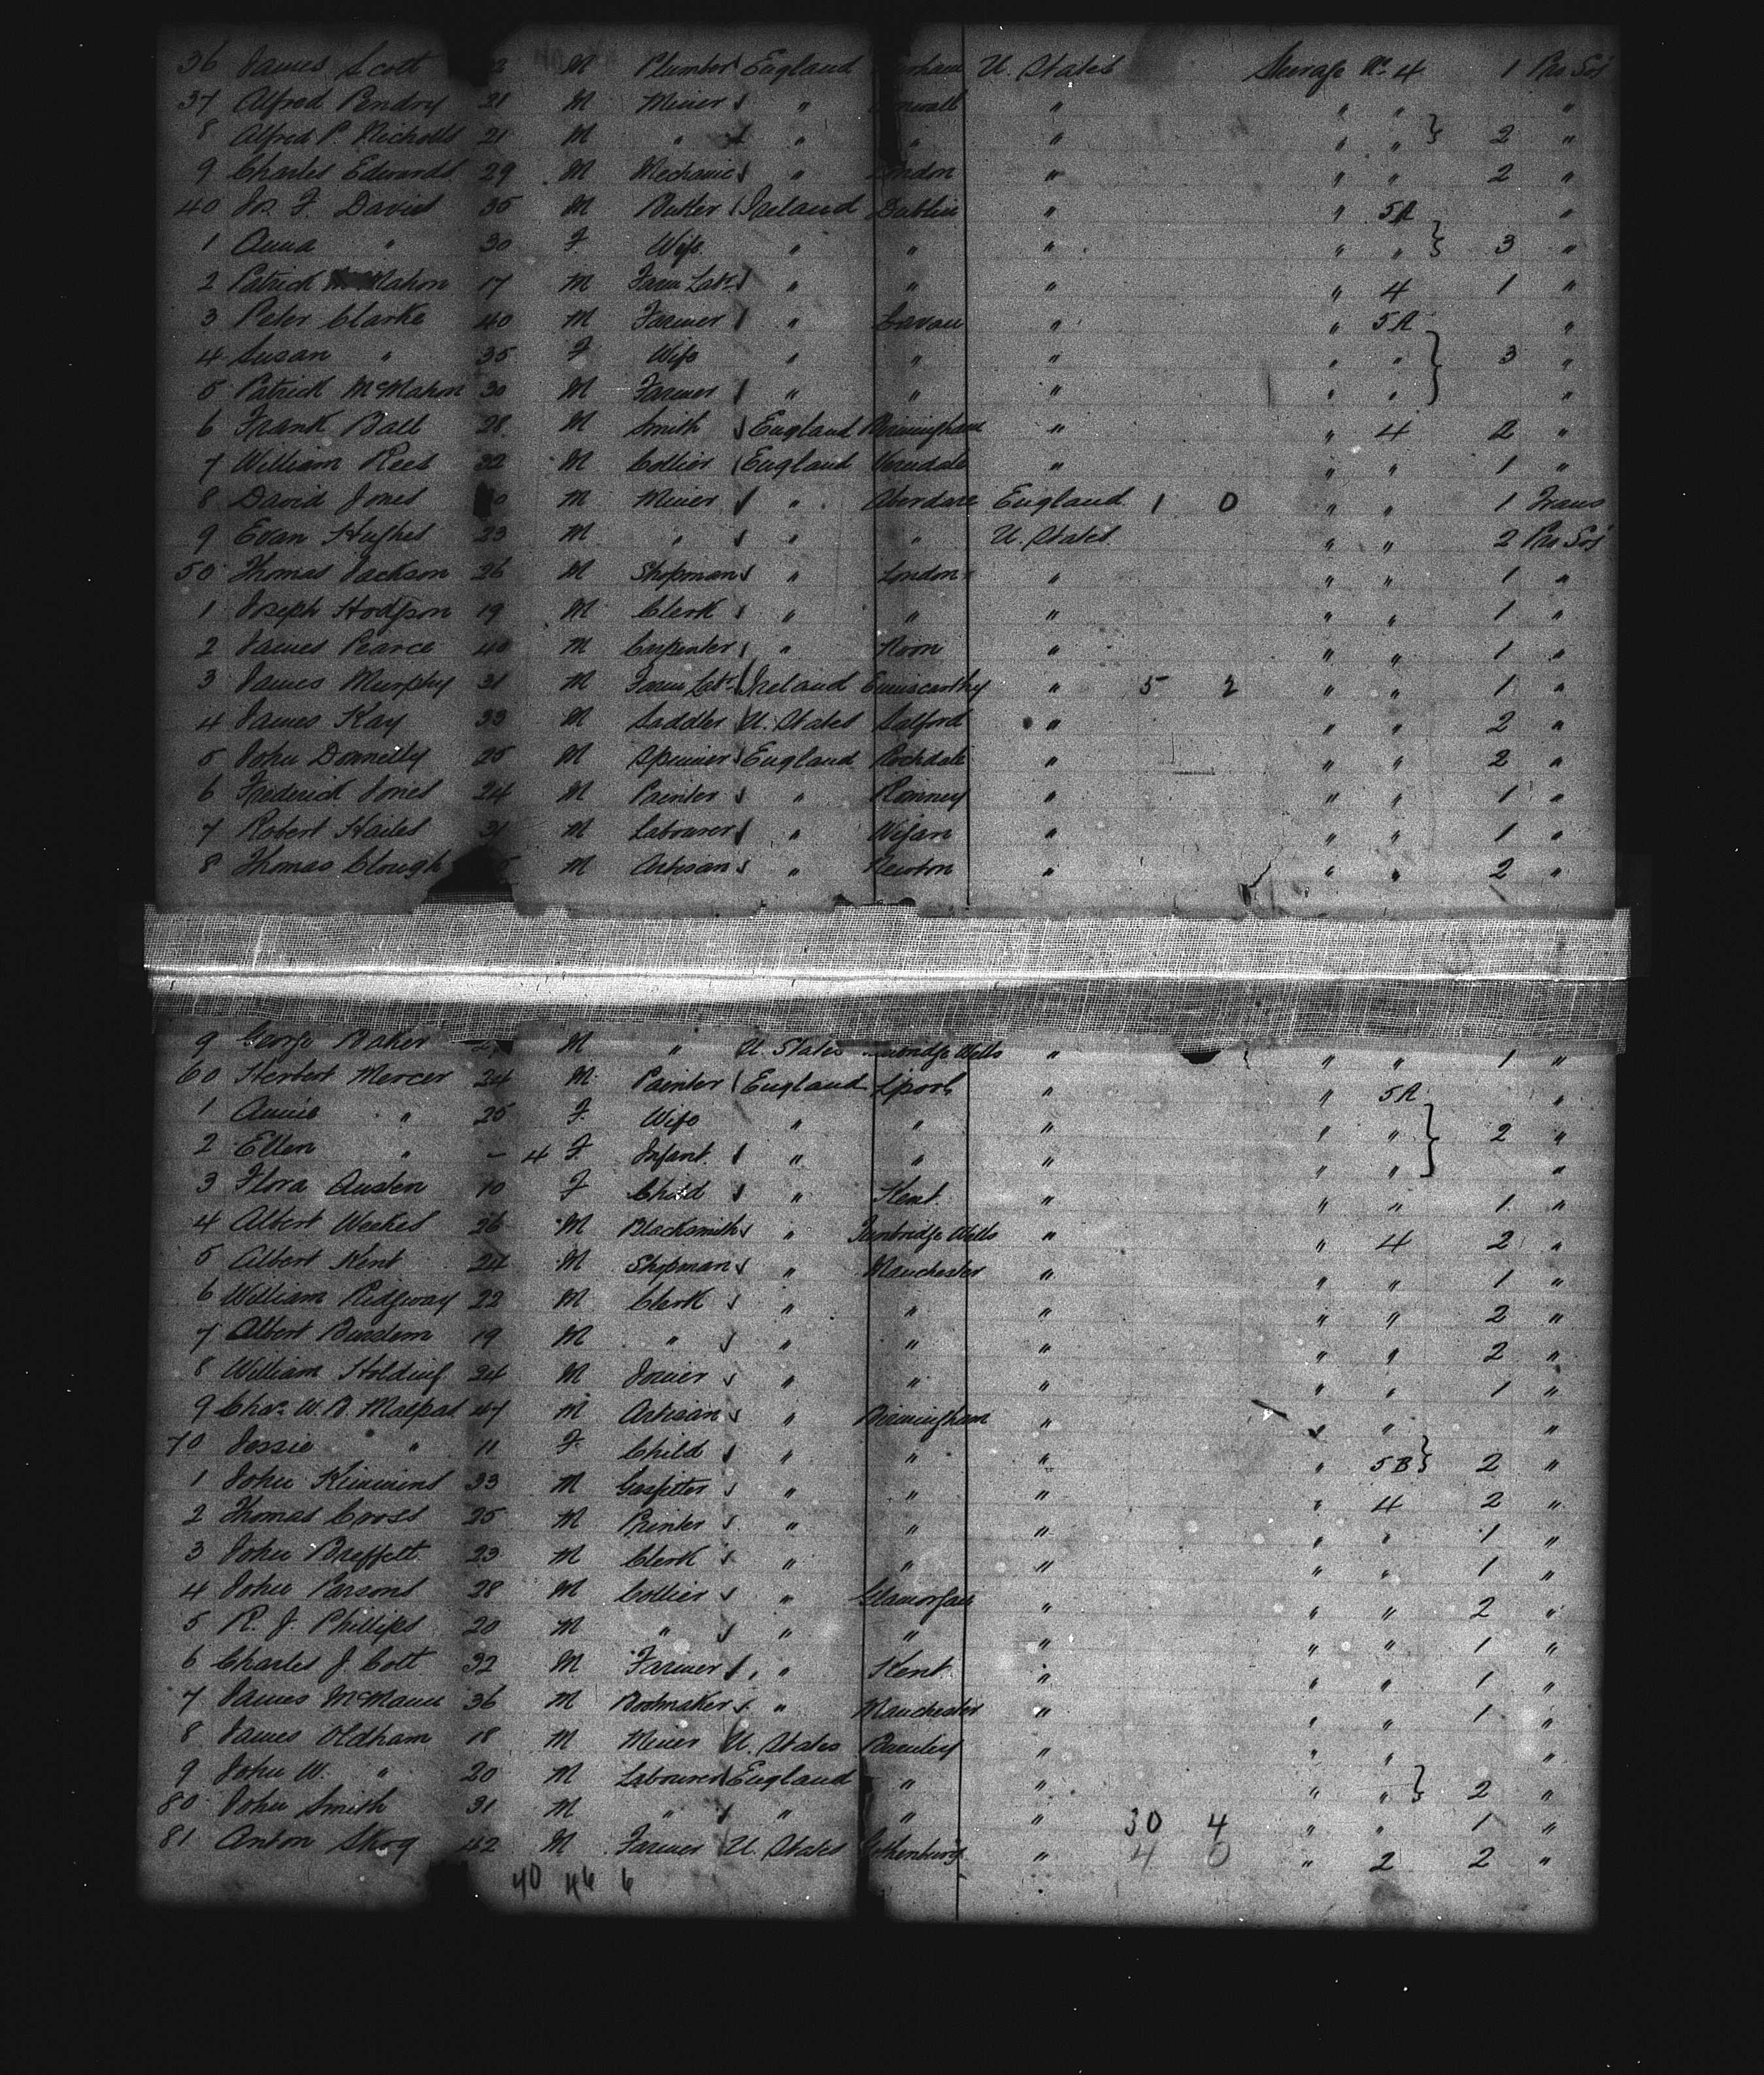 36 James Scott M Plumber England U. States Steerage No 4 1 Pro Soj
37 Alfred Pendry 21 M Miner " " " " "
8 Alfred P. Nicholls 21 M " " " " " " } 2 "
9 Charles Edwards 29 M Mechanic " London " " " 2 "
40 Js. F. Davies 35 M Butler Ireland Dublin " " 5A "
1 Anna " 30 F Wife " " " " " } 3 "
2 Patrick Mahon 17 M Farm Labr " " " " 4 1 "
3 Peter Clarke 40 M Farmer " Cavan " " 5A "
4 Susan " 35 F Wife " " " " " } 3 "
5 Patrick McMahon 30 M Farmer " " " " " "
6 Frank Ball 28 M Smith England Birmingham " " 4 2 "
7 William Rees 32 M Collier England " " " 1 "
8 David Jones M Miner " Aberdare England 1 0 " " 1 Trans
9 Evan Hughes 23 M " " " U. States " " 2 Pro Soj
50 Thomas Jackson 26 M Shopman " London " " " 1 "
1 Joseph Hodgson 19 M Clerk " " " " " 1 "
2 James Pearce 40 M Carpenter " " " " 1 "
3 James Murphy 31 M Farm Labr Ireland Enniscorthy " 5 2 " " 1 "
4 James Kay 33 M Saddler U. States Salford " " " 2 "
5 John Donnelly 25 M Spinner England Rochdale " " " 2 "
6 Frederick Jones 24 M Painter " Romney " " " 1 "
7 Robert Hailes 31 M Labourer " Wigan " " " 1 "
8 Thomas Clough M Artisan " Newton " " " 2 "
9 George Baker M " U. States Wells " " " 1 "
60 Herbert Mercer 24 M Painter England L'pool " " 5A "
1 Annie " 25 F Wife " " " " " } 2 "
2 Ellen " – 4 F Infant " " " " " "
3 Flora Austen 10 F Child " Kent " " " 1 "
4 Albert Weekes 26 M Blacksmith " Tunbridge Wells " " 4 2 "
5 Albert Kent 24 M Shopman " Manchester " " " 1 "
6 William Ridgway 22 M Clerk " " " " " 2 "
7 Albert Burdern 19 M " " " " " " 2 "
8 William Holding 24 M Joiner " " " " " 1 "
9 Chas. W. B. Malpas 47 M Artisan " Birmingham " " " "
70 Jessie " 11 F Child " " " " 5B } 2 "
1 John Kimmins 33 M Gasfitter " " " " 4 2 "
2 Thomas Cross 25 M Printer " " " " " 1 "
3 John Breffett 23 M Clerk " " " " " 1 "
4 John Parsons 28 M Collier " Glamorgan " " " 2 "
5 R. J. Phillips 20 M " " " " " " 1 "
6 Charles J. Colt 32 M Farmer " Kent " " " 1 "
7 James McMann 36 M Bootmaker " Manchester " " " 1 "
8 James Oldham 18 M Miner U. States Burnley " " " "
9 John W. " 20 M Labourer England " " " " } 2 "
80 John Smith 31 M " " " " 30 4 " " 1 "
81 Anton Skog 42 M Farmer U. States Gothenburg " 4 0 " 2 2 "
40 46 6